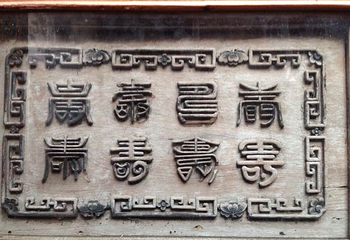 壽壽壽壽
壽壽壽壽